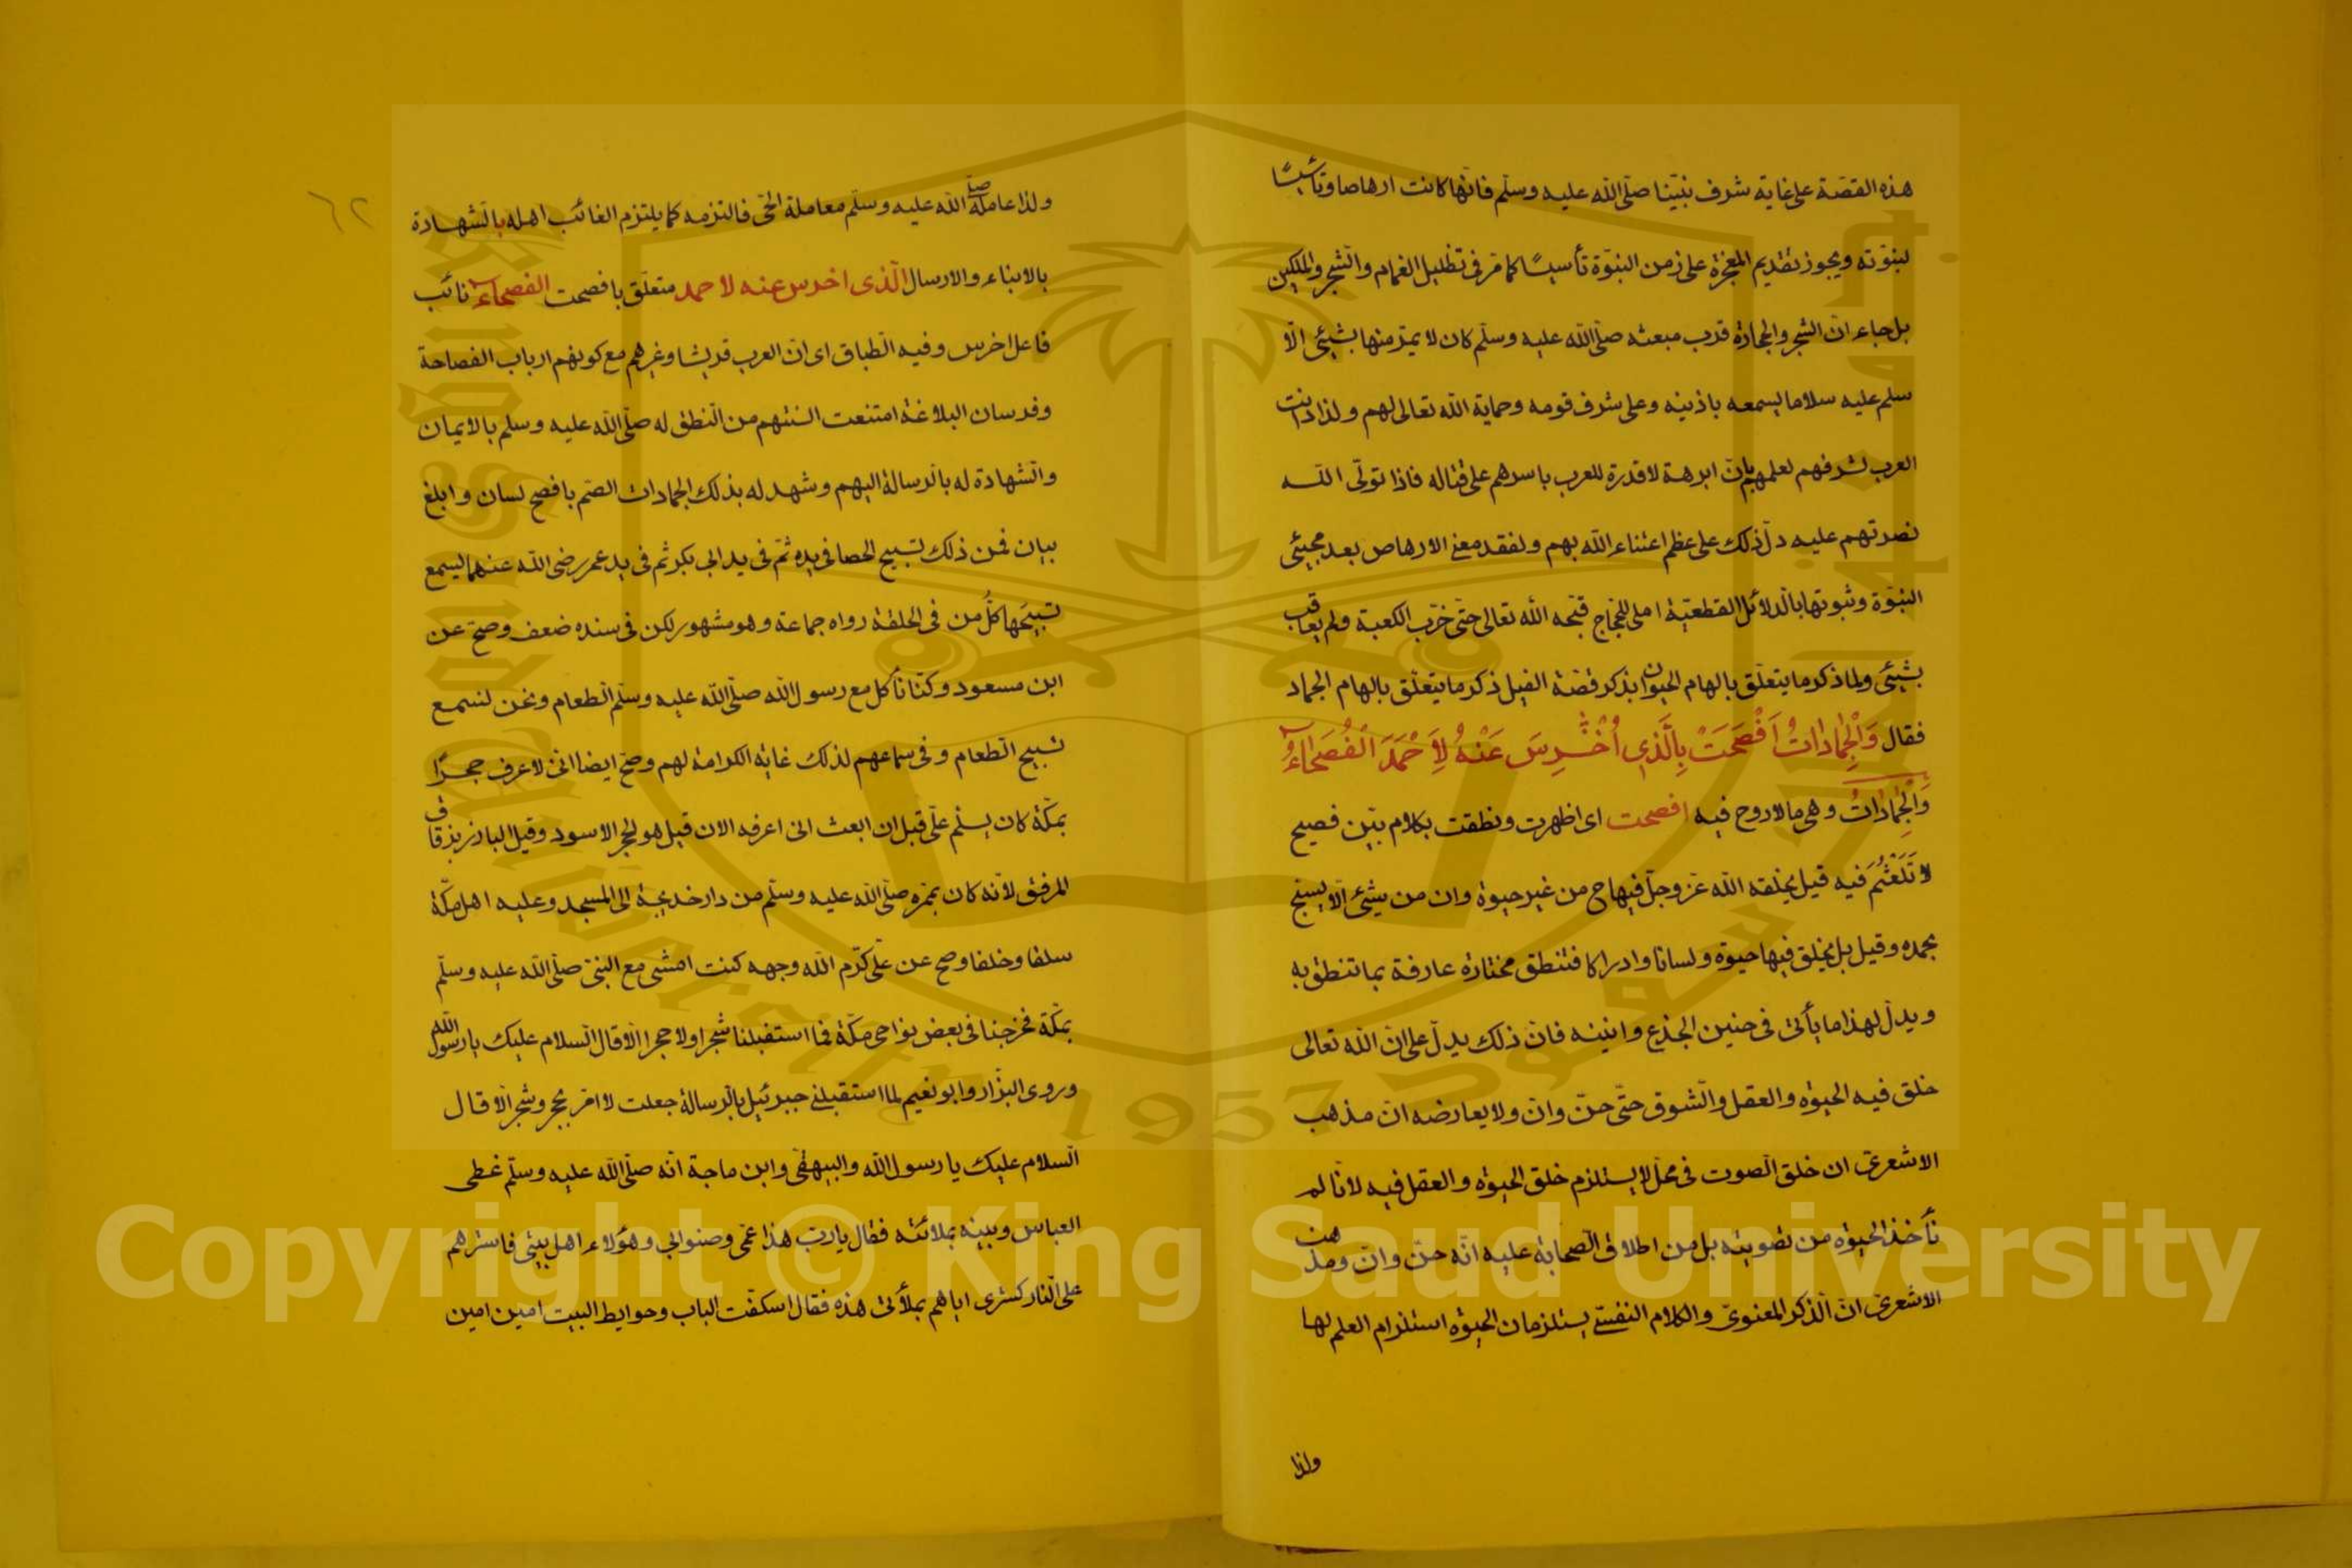 هذه القصّة على غاية شرف نبيّنا صلّى الله عليه وسلّم فانّها كانت ارهاصا وتأسيسًا
لنبوّته ويجوز تقديم المعجزة على زمن النبوّة تأسيسًا كما مرّ فى تظليل الغمام والشجر والملكين
بل جاء انّ الشجر والحجارة قرب مبعثه صلّى الله عليه وسلّم كان لا يمرّ منها بشيئى الّا
سلم عليه سلاما يسمعه باذنيه وعلى شرف قومه وحماية الله تعالى لهم ولذا دانت
العرب لشرفهم لعلمهم بانّ ابرهة لا قدرة للعرب باسرهم على قتاله فاذا تولّى الله
نصرتهم عليه دلّ ذلك على عظم اعتناء الله بهم ولفقد معنى الارهاص بعد مجيئى
النبوّة وثبوتها بالدلائل القطعيّة املى للحجاج قبّحه الله تعالى حتّى خرّب الكعبة ولم يعاقب
بشيئى ولما ذكر ما يتعلّق بالهام الحيوان بذكر قصّة الفيل ذكر ما يتعلّق بالهام الجماد
فقال وَالْجَمَادَاتُ اَفْصَحَتْ بِالَّذِي اُخْرِسَ عَنْهُ لِاَحْمَدَ الْفُصَحَاءُ
وَالْجَمَادَاتُ وهى ما لا روح فيه افصحت اى اظهرت ونطقت بكلام بيّن فصيح
لا تَلَعْثُمَ فيه قيل بخلقه الله عزّ وجلّ فيها ح من غير حيوة وان من شيئى الّا يسبّح
بحمده وقيل بل بخلق فيها حيوة ولسانا وادراكا فتنطق مختارة عارفة بما تنطق به
ويدلّ لهذا ما يأتى فى حنين الجذع وانينه فانّ ذلك يدلّ على انّ الله تعالى
خلق فيه الحيوة والعقل والشوق حتّى حنّ وانّ ولا يعارضه انّ مذهب
الاشعرىّ ان خلق الصوت فى محلّ لا يستلزم خلق الحيوة والعقل فيه لانّا لم
نأخذ الحيوة من تصويته بل من اطلاق الصحابة عليه انّه حنّ وانّ ومذهب
الاشعرىّ انّ الذكر المعنوىّ والكلام النفسىّ يستلزمان الحيوة استلزام العلم لها
ولذا
٦٢
ولذا عامله صلّى الله عليه وسلّم معاملة الحىّ فالتزمه كما يلتزم الغائب اهله بالشهادة
بالانباء والارسال الّذى اخرس عنه لاحمد متعلّق بافصحت الفصحاء نائب
فاعل اخرس وفيه الطباق اى انّ العرب قريشا وغيرهم مع كونهم ارباب الفصاحة
وفرسان البلاغة امتنعت السنتهم من النطق له صلّى الله عليه وسلم بالايمان
والشهادة له بالرسالة اليهم وشهد له بذلك الجمادات الصّم بافصح لسان وابلغ
بيان فمن ذلك تسبيح الحصا فى يده ثمّ فى يد ابى بكر ثم فى يد عمر رضى الله عنهما ليسمع
تسبيحَها كلُّ من فى الحلقة رواه جماعة وهو مشهور لكن فى سنده ضعف وصحّ عن
ابن مسعود وكنّا نأكل مع رسول الله صلّى الله عليه وسلّم الطعام ونحن لنسمع
تسبيح الطعام وفى سماعهم لذلك غاية الكرامة لهم وصحّ ايضا انى لاعرف حجرًا
بمكّة كان يسلّم علىّ قبل ان ابعث انى اعرفه الان قيل هو الحجر الاسود وقيل البارز بزقاق
المرفق لانّه كان بممرّه صلّى الله عليه وسلّم من دار خديجة الى المسجد وعليه اهل مكّة
سلفا وخلفا وصح عن علىّ كرّم الله وجهه كنت امشى مع النبىّ صلّى الله عليه وسلّم
بمكّة فخرجنا فى بعض نواحى مكّة فما استقبلنا شجر ولا حجر الّا قال السلام عليك يا رسول الله
وروى البزّار وابو نعيم لما استقبلنى جبرئيل بالرسالة جعلت لا امرّ بحجر وشجر الّا قال
السلام عليك يا رسول الله والبيهقى وابن ماجة انّه صلّى الله عليه وسلّم غطى
العباس وبينه بملائته فقال يا ربّ هذا عمّى وصنو ابى وهؤلاء اهل بيتى فاسترهم
على النار كسترى اياهم بملأتى هذه فقال اسكفّت الباب وحوايط البيت امين امين
Copyright © King Saud University
King Saud University
1957